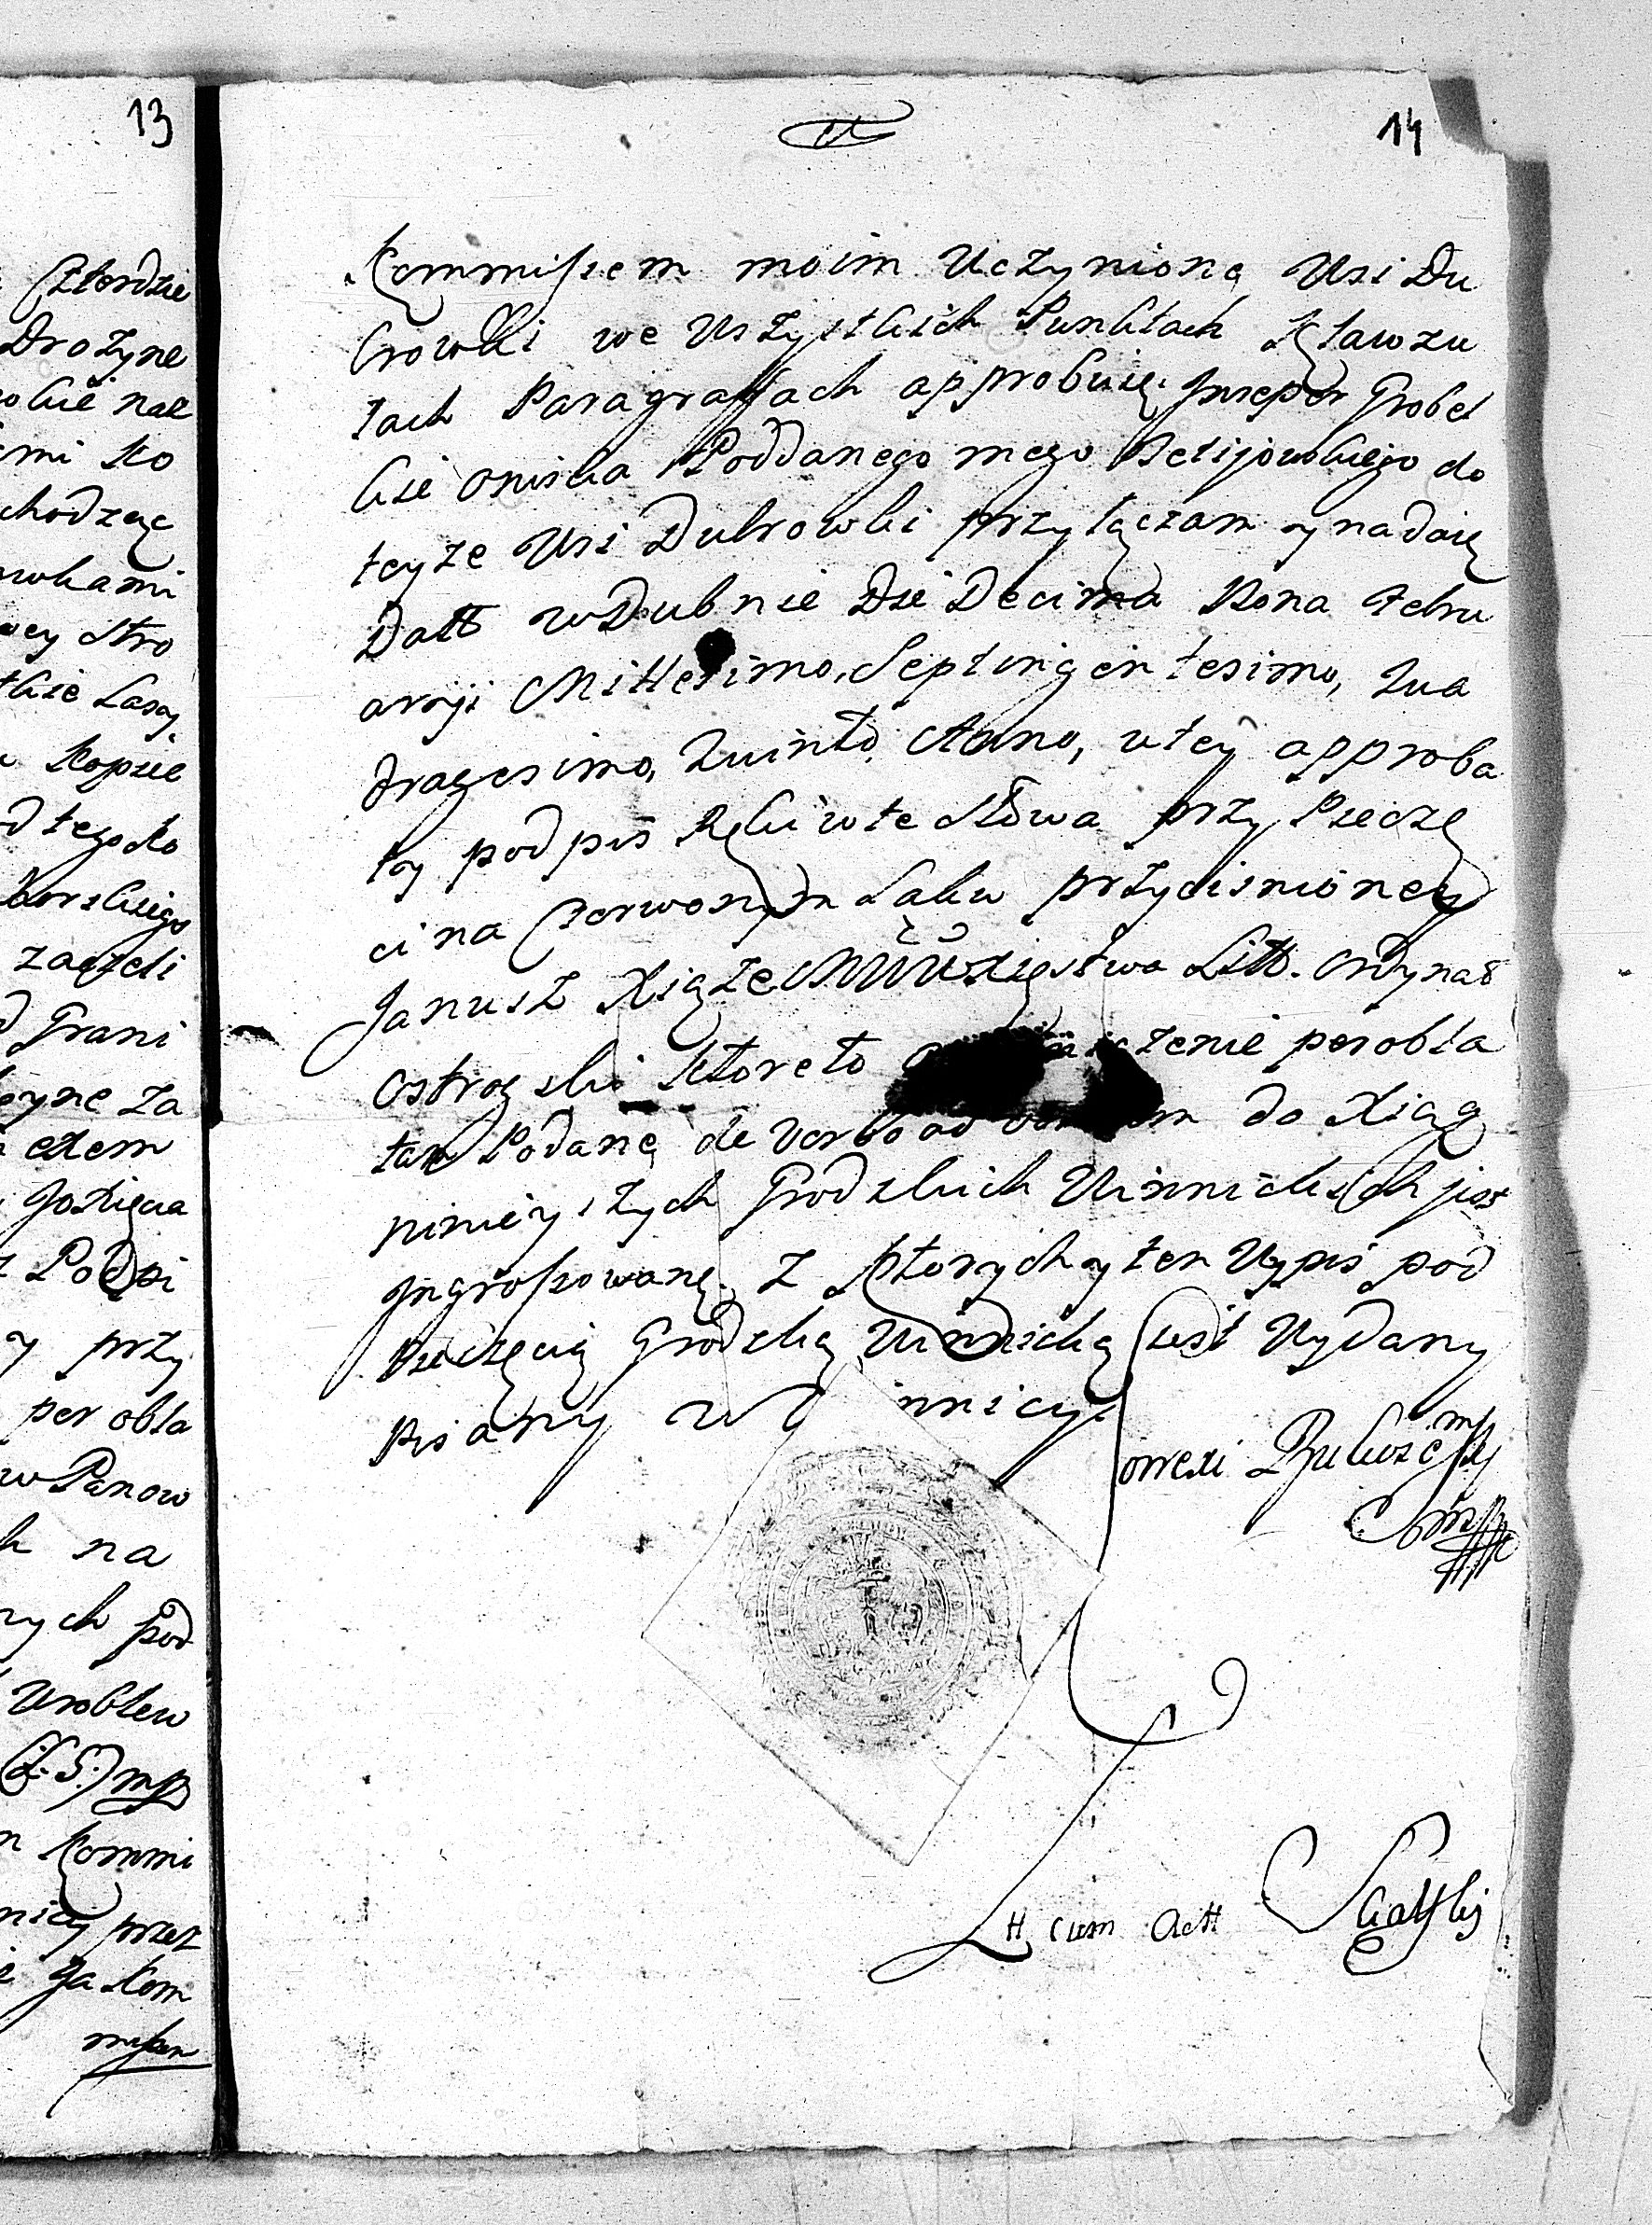 13
Czterdzie
Drożyne
nale
mi ko
chodzące
wkami
Stro
Lasy
Kopiec
d tego do
borskiego
zaczeli
Grani
za
Podpi
y przy
per obla
w Panow
h na
rych pod
Wroblew
(L.S.) mp
Kommi
nicy przez
Ja Kom
missem
14
Kommissem moim Uczynioną Wsi Du
browki we Wszystkich Punktach Klawzu
łach Paragraffach approbuię. Insuper Grobel
kie Oniska Poddanego mego Petijowskiego do
teyże Wsi Dubrowki przyłączam y nadaię
Datt w Dubnie Die Decima Nona Febru
aryi Millesimo, Septingentesimo, Qua
dragesimo, Quinto, Anno, u tey approba
ty podpis Ręki w te Słowa przy Pieczę
ci na Czerwonym Laku przyciśnioney
Janusz Xiąże WW Xięstwa Litt. Ordynat
Ostrogski Ktoreto per obla
tam Podane de verbo ad verbum do Xiąg
ninieyszych Grodzkich Winnickich jest
Ingrossowane. Z Ktorych y ten Wypis pod
Pieczęcią Grodzką Winnicką jest Wydany
Pisany w Winnicy.
Correxi
mp
Lt cum Actt